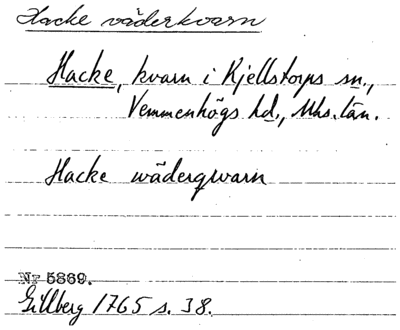 Hacke väderkvarn
Hacke, kvarn i Kjellstorps sn.,
Vemmenhögs hd., Mhs. län.
Hacke wäderqwarn
Nr 5869.
Gillberg 1765 s. 38.